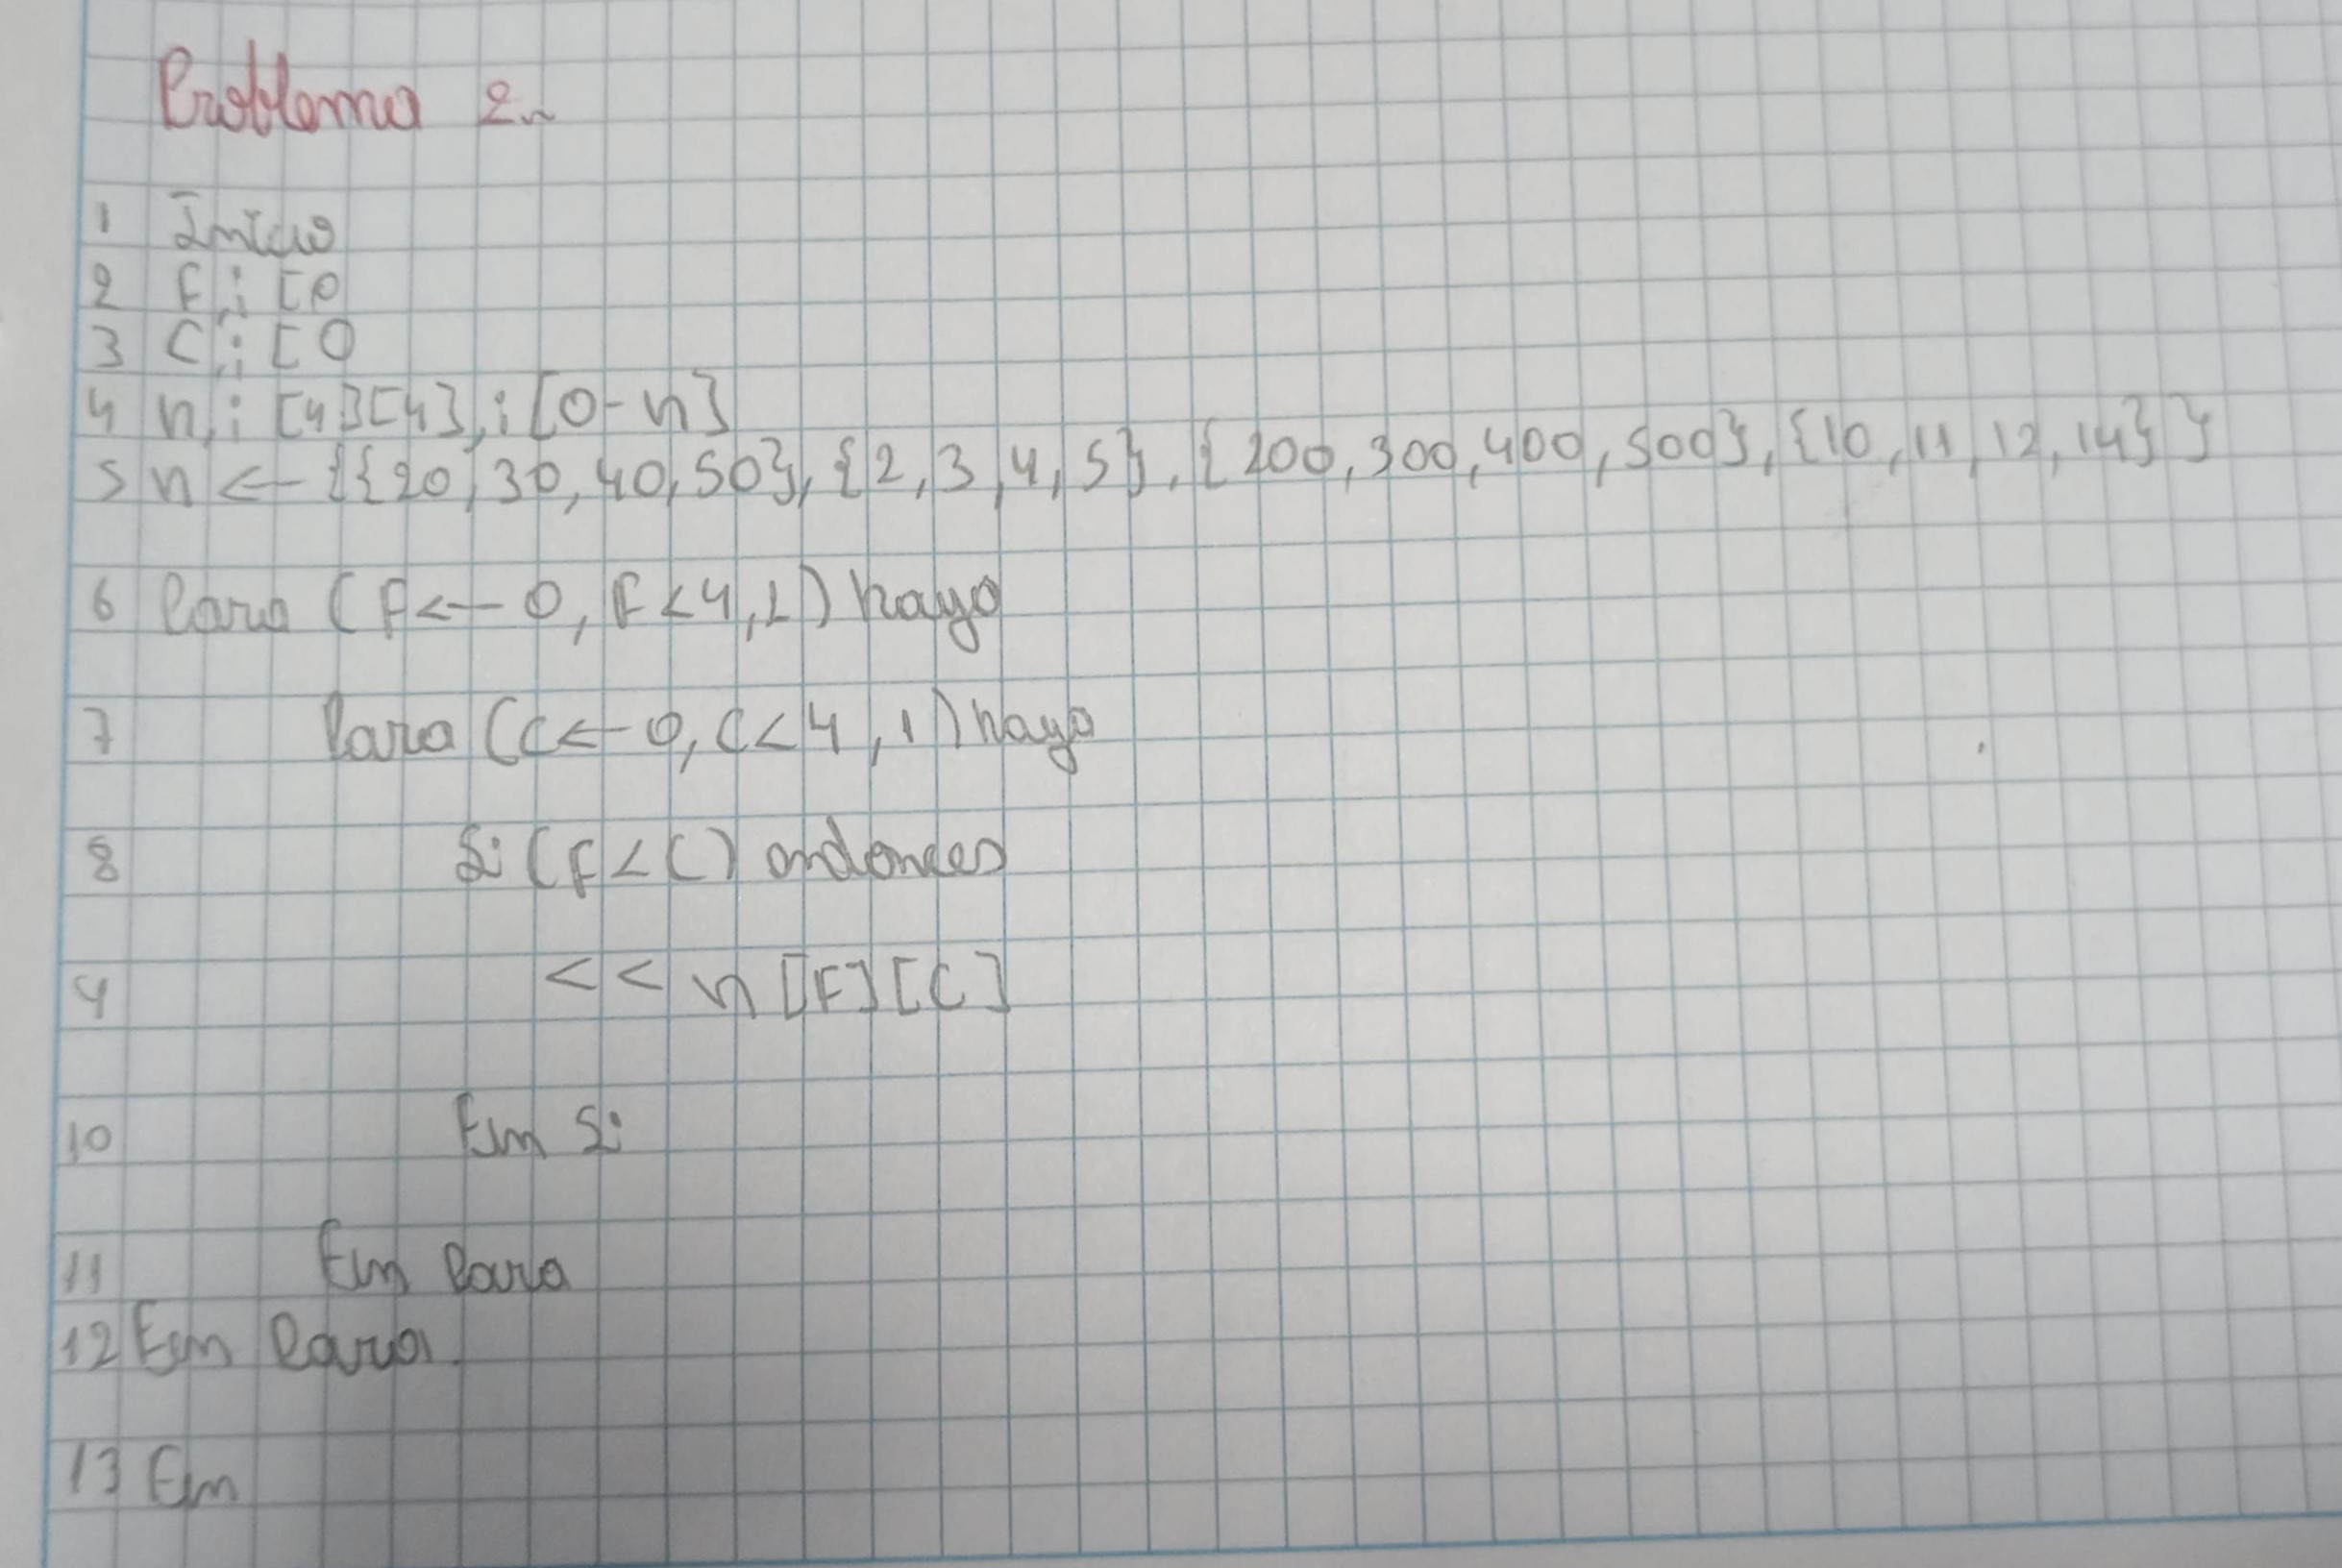 Problema 2~
1 Inicio
2 F,: [0
3 C,: [0
4 n,: [4][4],: [0-n]
5 n <- {{20,30,40,50},{2,3,4,5},{200,300,400,500},{10,11,12,14}}
6 Para (F<-0, F<4,1) haga
7 Para (C<-0, C<4,1) haga
8 Si (F<C) entonces
9 << n[F][C]
10 Fin Si
11 Fin Para
12 Fin Para.
13 Fin